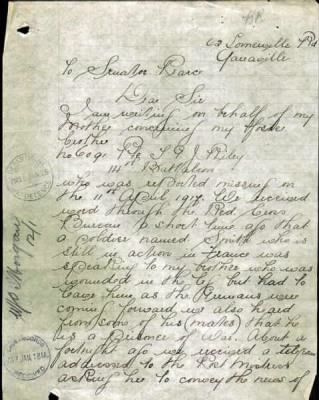 62 Somerville Rd
Yarraville
To Senator Pearce
Dear Sir
I am writing on behalf of my
mother concerning my foster
brother
Pte
Riley
14th Battalion
who was reported missing on
the 11th April 1917. We received
word through the Red Cross
Bureau a short time ago that
a soldier named Smith who is
still in action in France was
speaking to my brother who was
wounded in the but had to
leave him as the Germans were
coming forward we also heard
from some of his (mates) that he
is a Prisoner of War. About a
fortnight ago we received a telegram
addressed to the Post Mistress
asking her to convey the news of